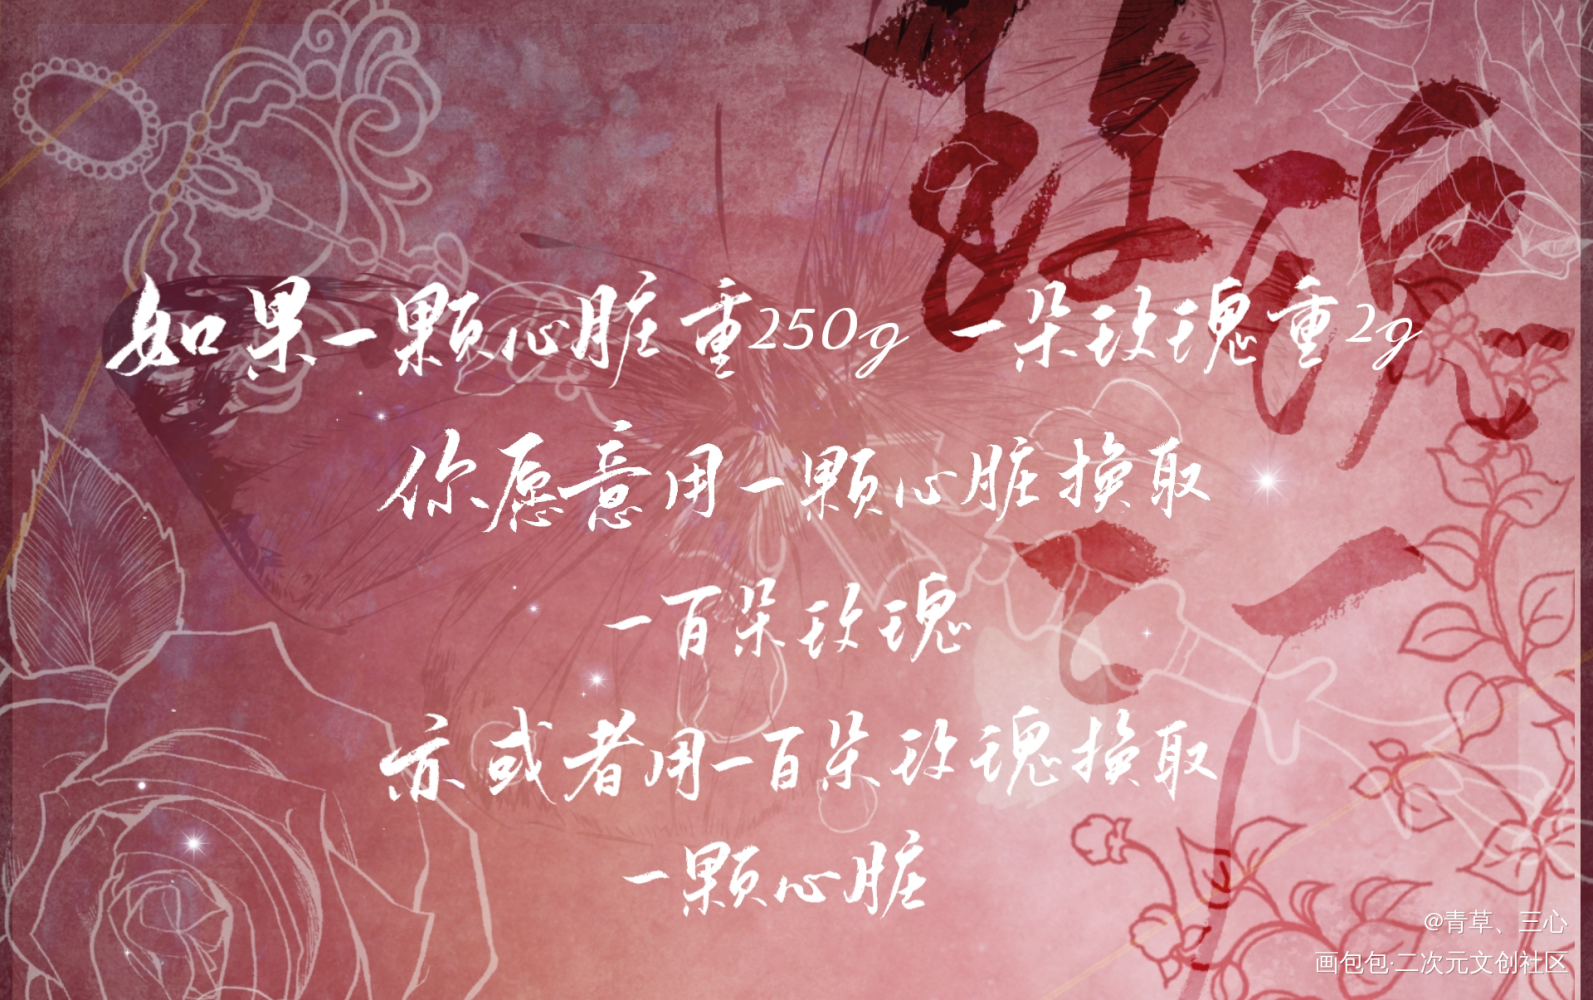 玫瑰
如果一颗心脏重250g 一朵玫瑰重2g
你愿意用一颗心脏换取
一百朵玫瑰
亦或者用一百朵玫瑰换取
一颗心脏
@青草、三心
画包包·二次元文创社区